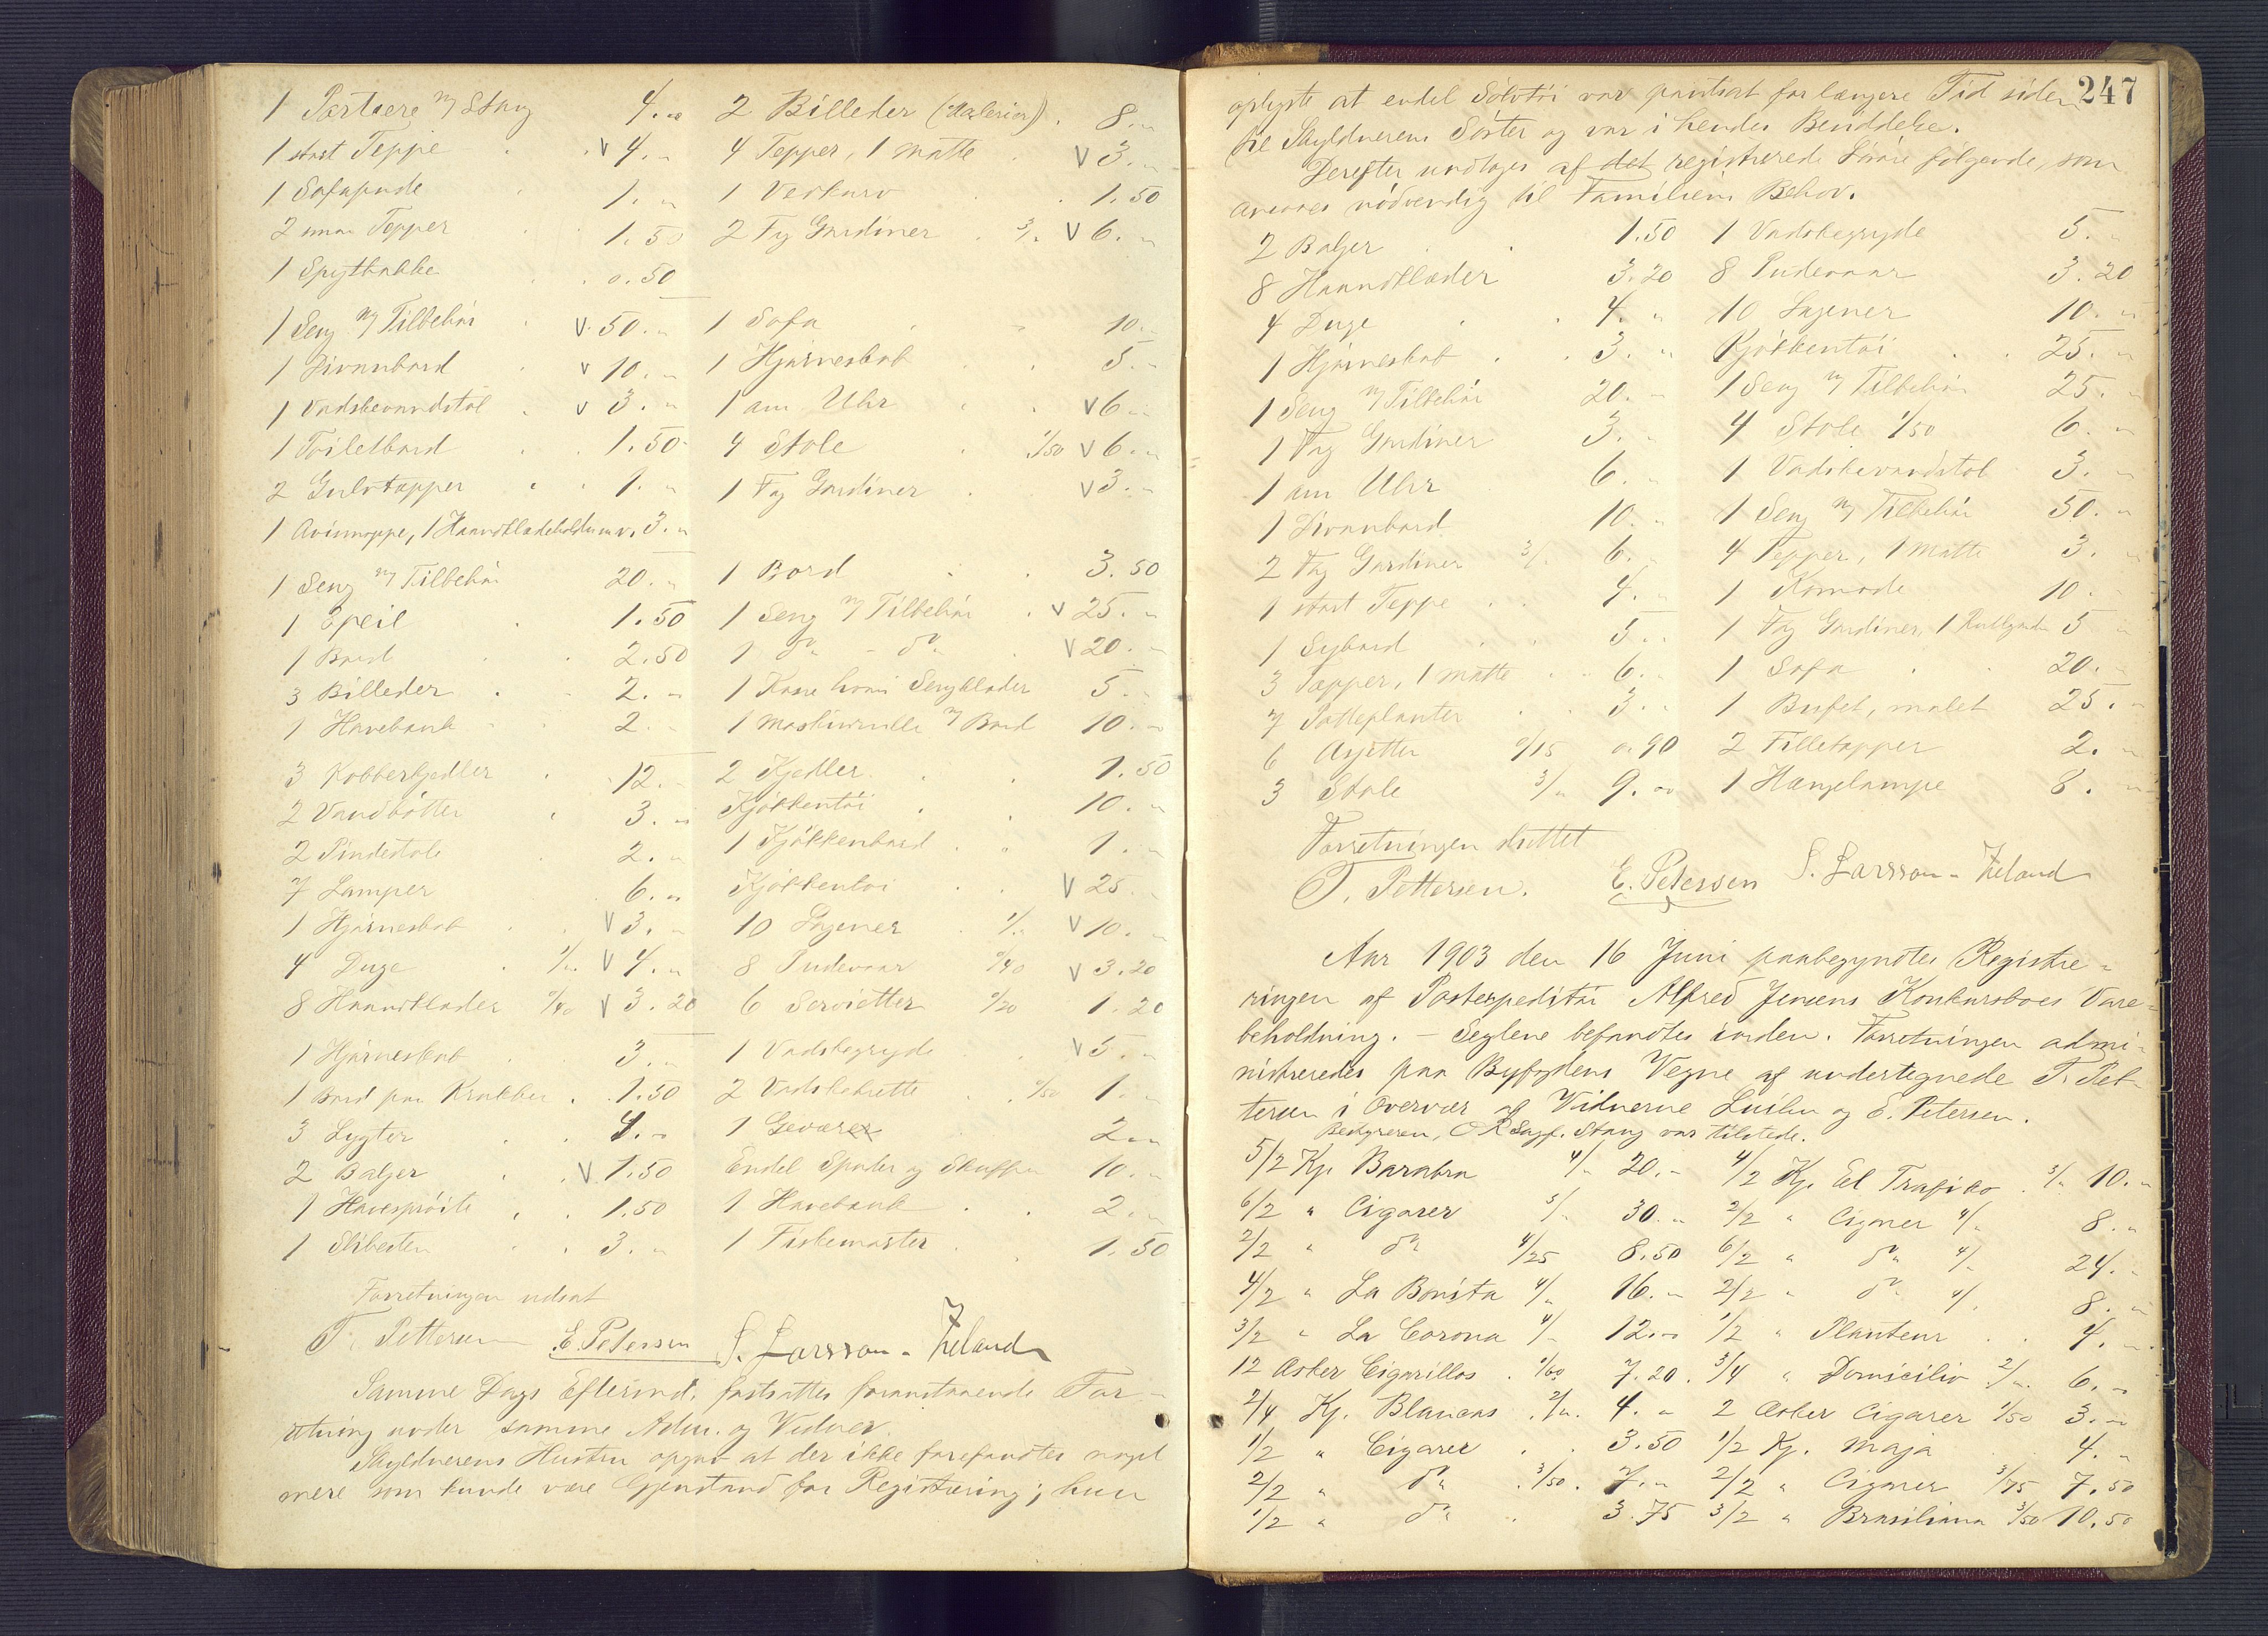 1 Portiere m/ Stang 4. "
1 stort Teppe V 4. "
1 Sofapude 1. "
2 smaa Tepper 1.50
1 Spytbakke 0.50
1 Seng m/ Tilbehör V 50. "
1 Divanbord V 10. "
1 Vadskevandstol V 3. "
1 Toiletbord 1.50
2 Gulvtæpper 1. "
1 Avismappe, 1 Haandklædeholder m.v. 3. "
1 Seng m/ Tilbehör 20. "
1 Speil 1.50
1 Bord 2.50
3 Billeder 2. "
1 Havebænk 2. "
3 Kobberkjedler 12. "
2 Vandbötter 3. "
2 Pindestole 2. "
7 Lamper 6. "
1 Hjörneskab V 3. "
4 Duge 1/" V 4. "
8 Haandklæder 0/40 V 3.20
1 Hjörneskab 3. "
1 Bord paa Krakker 1.50
3 Lygter 4. "
2 Baljer V 1.50
1 Havespröite 1.50
1 Slibesten 3. "
2 Billeder (Malerier) 8. "
4 Tepper, 1 matte V 3. "
1 Vedkurv 1.50
2 Fag Gardiner 3/" V 6. "
1 Sofa 10. "
1 Hjörneskab 5. "
1 am Uhr V 6. "
4 Stole 1/50 V 6. "
1 Fag Gardiner V 3. "
1 Bord 3.50
1 Seng m/ Tilbehör V 25. "
1 do - do V 20. "
1 Kasse hvori Sengklæder 5. "
1 Maskinrulle m/ Bord 10. "
2 Kjedler 1.50
Kjökkentöi 10. "
1 Kjökkenbord 1. "
Kjökkentöi V 25. "
10 Lagener 1/" V 10. "
8 Pudevaar 0/40 V 3.20
6 Servietter 0/20 1.20
1 Vadskegryde V 5. "
2 Vadskebrætte 0/50 1. "
1 Gevær 2. "
Endel Spader og Skuffer 10. "
1 Havebænk 2. "
1 Fiskemarter 1.50
Forretningen udsat
T. Pettersen E. Petersen S. Larsson-Zeland
Samme Dags Eftermd. fortsattes foranstaaende For-
retning under samme Adm. og Vidner.
Skyldnerens Hustru opgav at der ikke forefandtes noget
mere som kunde være Gjenstand for Registrering; hun
247
oplyste at endel Sölvtöi var pantsat for længere Tid siden
til Skyldnerens Söster og var i hendes Besiddelse.
Derefter undtoges af det registrerede Lösöre fölgende, som
ansaaes nödvendig til Familiens Behov.
2 Baljer 1.50 1 Vadskegryde 5. "
8 Haandklæder 3.20 8 Pudevaar 3.20
4 Duge 4. " 10 Lagener 10. "
1 Hjörneskab 3. " Kjökkentöi 25. "
1 Seng m/ Tilbehör 20. " 1 Seng m/ Tilbehör 25. "
1 Fag Gardiner 3. " 4 Stole 1/50 6. "
1 am Uhr 6. " 1 Vadskevandstol 3. "
1 Divanbord 10. " 1 Seng m/ Tilbehör 50. "
2 Fag Gardiner 3/" 6. " 4 Tepper, 1 Matte 3. "
1 stort Teppe 4. " 1 Komode 10. "
1 Sybord 5. " 1 Fag Gardiner, 1 5 "
3 Tæpper, 1 matte 6. " 1 Sofa 20. "
7 Potteplanter 3. " 1 Bufet, malet 25. "
6 Asjetter 0/15 0.90 2 Filletæpper 2. "
3 Stole 3/" 9. " 1 Hængelampe 8. "
Forretningen sluttet
T. Pettersen. E. Petersen S. Larsson-Zeland
Aar 1903 den 16 Juni paabegyndtes Registre-
ringen af Postexpeditör Alfred Jensens Konkursboes Vare-
beholdning. - Seglene befandtes iorden. Forretningen admi-
nistreredes paa Byfogdens Vegne af undertegnede T. Pet-
tersen i Overvær af Vidnerne og E. Petersen.
Bestyreren, O.R.Sagf. Stang var tilstede.
5/2 Kj. Barabra 4/" 20. " 4/2 Kj. El Trafiko 3/" 10. "
6/2 " Cigarer 5/" 30. " 2/2 " Cigarer 4/" 8. "
2/2 " do 4/25 8.50 6/2 " do 4/" 24. "
4/2 " La Bonita 4/" 16. " 2/2 " do 4/" 8. "
3/2 " La Corona 4/" 12. " 1/2 " Planteur 4. "
12 Æsker Cigarillos 0/60 7.20 3/4 " Domicilio 2/" 6. "
2/4 Kj. Blancas 2/" 4. " 2 Æsker Cigarer 1/50 3. "
1/2 " Cigarer 3.50 1/2 Kj. Maja 4. "
2/2 " do 3/50 7. " 2/2 " Cigarer 3/75 7.50
1/2 " do 3.75 3/2 " Brasiliana 3/50 10.50